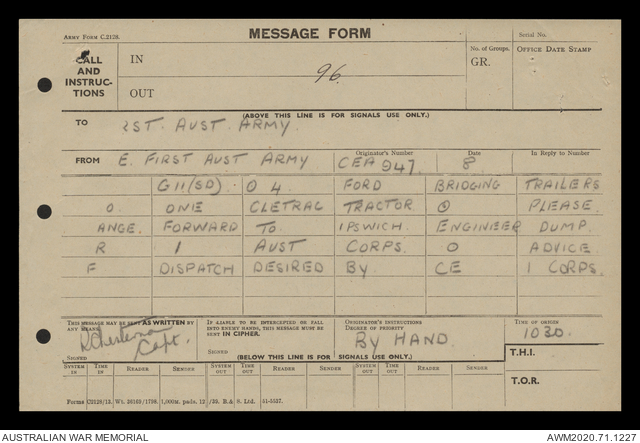 ARMY FORM C.2128.
MESSAGE FORM
Serial No.
CALL AND INSTRUC- TIONS
IN
OUT
96.
No. of Groups.
GR.
OFFICE DATE STAMP
(ABOVE THIS LINE IS FOR SIGNALS USE ONLY.)
TO 1ST. AUST. ARMY.
FROM E. FIRST AUST ARMY
Originator's Number
CEA 947.
Date
8
In Reply to Number
G11(SD). O 4 FORD BRIDGING TRAILERS
O. ONE CLETRAC TRACTOR. ⊙ PLEASE.
ANGE. FORWARD TO IPSWICH. ENGINEER DUMP.
R 1 AUST CORPS. O ADVICE.
F DISPATCH DESIRED BY CE 1 CORPS.
THIS MESSAGE MAY BE SENT AS WRITTEN BY ANY MEANS.
Capt.
SIGNED
IF LIABLE TO BE INTERCEPTED OR FALL INTO ENEMY HANDS, THIS MESSAGE MUST BE SENT IN CIPHER.
SIGNED
ORIGINATOR'S INSTRUCTIONS
DEGREE OF PRIORITY
BY HAND.
TIME OF ORIGIN
1030.
(BELOW THIS LINE IS FOR SIGNALS USE ONLY.)
T.H.I.
SYSTEM IN TIME IN READER SENDER SYSTEM OUT TIME OUT READER SENDER SYSTEM OUT TIME OUT READER SENDER
T.O.R.
Forms C2128/13.
AUSTRALIAN WAR MEMORIAL
AWM2020.71.1227